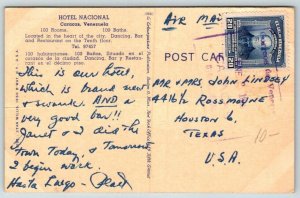 HOTEL NACIONAL
Caracas, Venezuela
100 Rooms. 100 Baths.
Located in the heart of the city. Dancing, Bar
and Restaurant on the Tenth floor.
Tel. 97457
100 habitaciones. 100 Baños. Situado en el
corazón de la ciudad. Dancing, Bar y
Restaurant
This is our hotel,
which is brand new
& swank. AND a
very good bar!!
Janet & I did the
town Today & Tomorrow
I begin work.
Hasta Luego -
AIR MAIL
POST CARD
MR & MRS JOHN LINDSEY
4416½ ROSSMOYNE
HOUSTON 6,
TEXAS
U.S.A.
10-